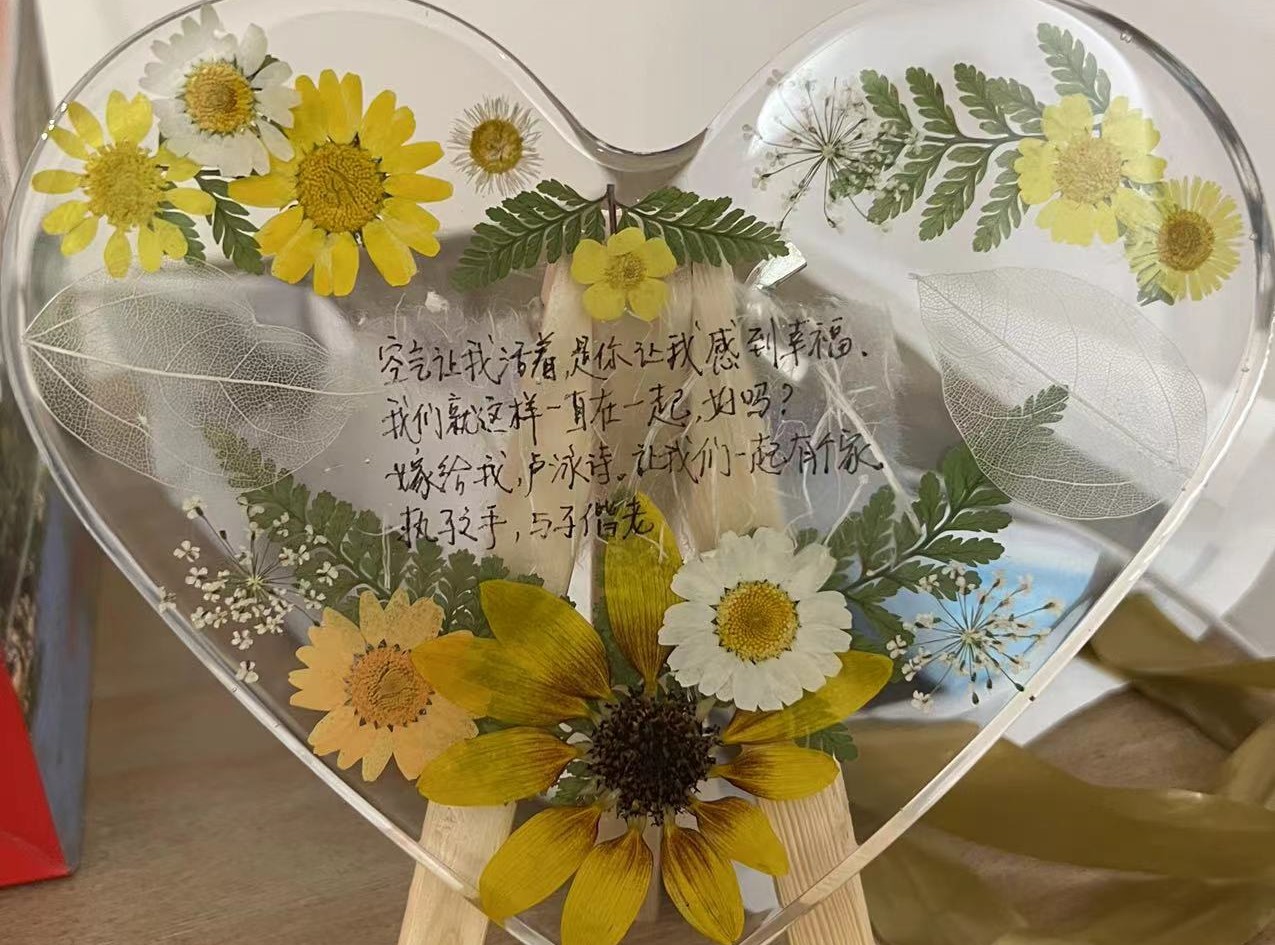 空气让我活着,是你让我感到幸福.
我们就这样一直在一起,好吗?
嫁给我,卢泳诗。让我们一起有个家.
执子之手,与子偕老